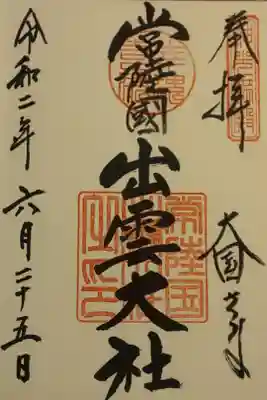 奉拝
大国さま
常陸國出雲大社
常陸国
令和二年六月二十五日